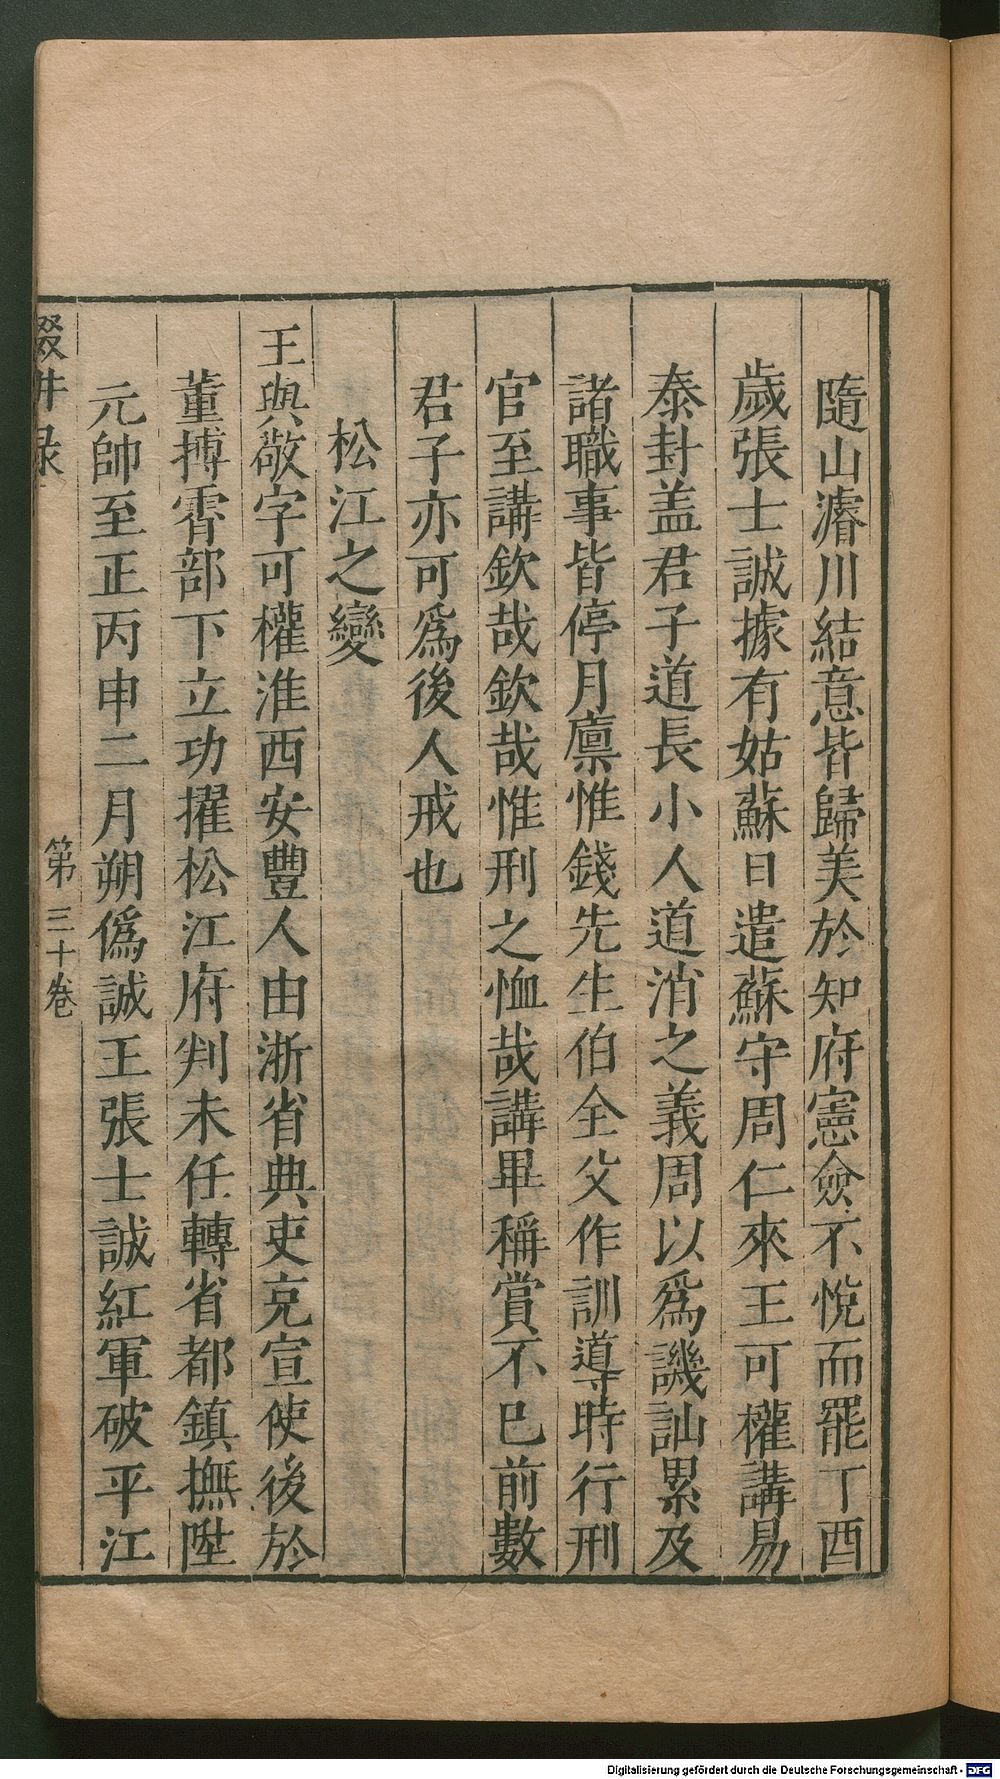 隨山濬川結意皆歸美於知府憲僉不悅而罷丁酉
歲張士誠據有姑蘇日遣蘇守周仁來王可權講易
泰封盖君子道長小人道消之義周以爲譏訕累及
諸職事皆停月廪惟錢先生伯全父作訓導時行刑
官至講欽哉欽哉惟刑之恤哉講畢稱賞不已前數
君子亦可爲後人戒也
松江之變
王與敬字可權淮西安豐人由浙省典吏克宣使後於
董摶霄部下立功擢松江府判未任轉省都鎮撫陞
元帥至正丙申二月朔僞誠王張士誠紅軍破平江
輟畊录
第三十卷
Digitalisierung gefördert durch die Deutsche Forschungsgemeinschaft - DFG